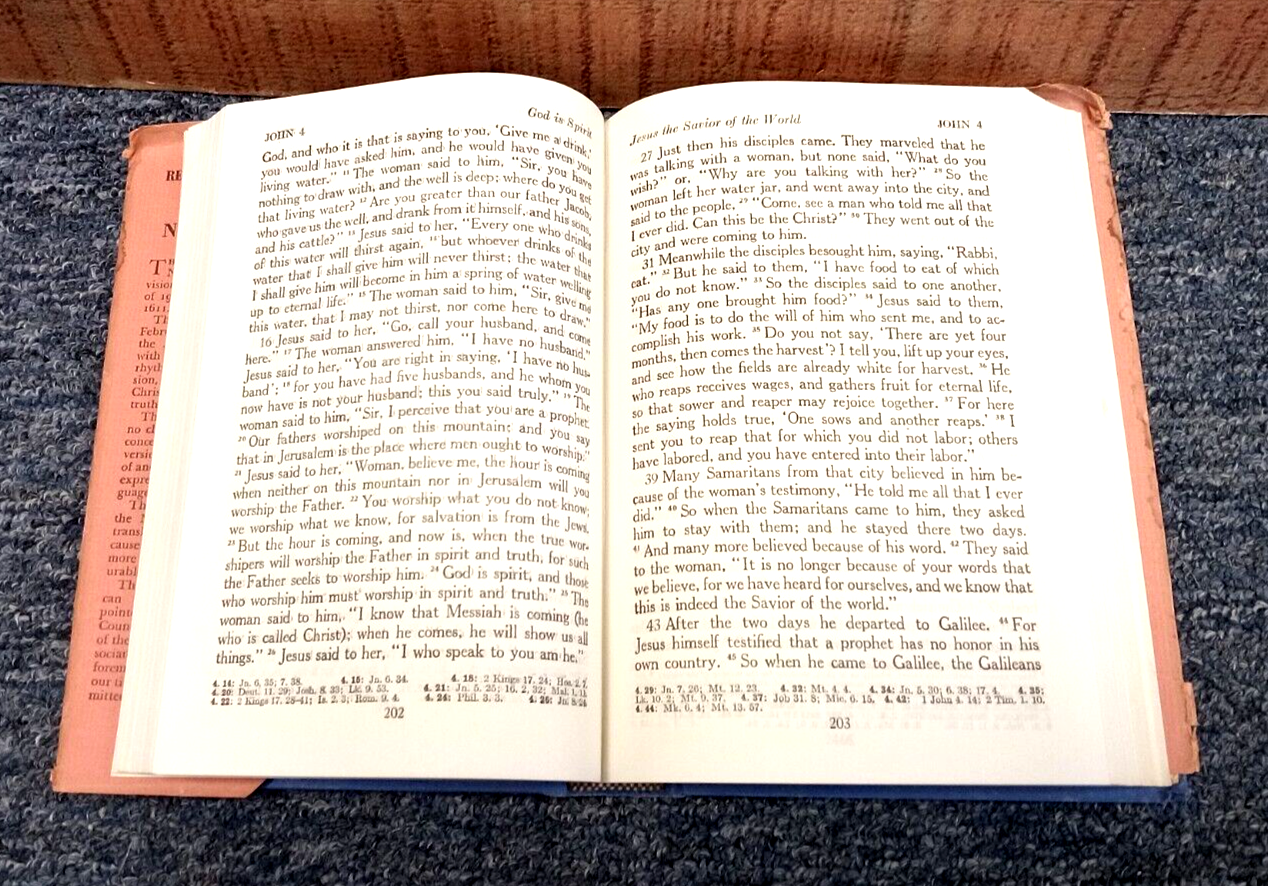 RE
N
T
N
visio
of 19
1611,
Th
Febr
the
with
rhyth
sion,
Chris
truth
Th
no cl
conce
versio
of an
expre
guage
Th
the N
transl
cause
more
urabl
Th
can
point
Coun
of the
social
forem
our ti
mitte
JOHN 4
God is Spirit
God, and who it is that is saying to you, 'Give me a drink,'
you would have asked him, and he would have given you
living water." 11 The woman said to him, "Sir, you have
nothing to draw with, and the well is deep; where do you get
that living water? 12 Are you greater than our father Jacob,
who gave us the well, and drank from it himself, and his sons,
and his cattle?" 13 Jesus said to her, "Every one who drinks
of this water will thirst again, 14 but whoever drinks of the
water that I shall give him will never thirst; the water that
I shall give him will become in him a spring of water welling
up to eternal life." 15 The woman said to him, "Sir, give me
this water, that I may not thirst, nor come here to draw."
16 Jesus said to her, "Go, call your husband, and come
here." 17 The woman answered him, "I have no husband."
Jesus said to her, "You are right in saying, 'I have no hus-
band'; 18 for you have had five husbands, and he whom you
now have is not your husband; this you said truly." 19 The
woman said to him, "Sir, I perceive that you are a prophet.
20 Our fathers worshiped on this mountain; and you say
that in Jerusalem is the place where men ought to worship."
21 Jesus said to her, "Woman, believe me, the hour is coming
when neither on this mountain nor in Jerusalem will you
worship the Father. 22 You worship what you do not know;
we worship what we know, for salvation is from the Jews.
23 But the hour is coming, and now is, when the true wor-
shipers will worship the Father in spirit and truth, for such
the Father seeks to worship him. 24 God is spirit, and those
who worship him must worship in spirit and truth." 25 The
woman said to him, "I know that Messiah is coming (he
who is called Christ); when he comes, he will show us all
things." 26 Jesus said to her, "I who speak to you am he."
4. 14: Jn. 6, 35; 7, 38. 4. 15: Jn. 6. 34. 4. 18: 2 Kings 17, 24; Hos. 2. 7.
4. 20: Deut. 11. 29; Josh. 8. 33; Lk. 9. 53. 4. 21: Jn. 5. 25; 16. 2, 32; Mal. 1. 11.
4. 22: 2 Kings 17. 28-41; Is. 2. 3; Rom. 9. 4. 4. 24: Phil. 3. 3. 4. 26: Jn. 8. 24
202
Jesus the Savior of the World
JOHN 4
27 Just then his disciples came. They marveled that he
was talking with a woman, but none said, "What do you
wish?" or, "Why are you talking with her?" 28 So the
woman left her water jar, and went away into the city, and
said to the people, 29 "Come, see a man who told me all that
I ever did. Can this be the Christ?" 30 They went out of the
city and were coming to him.
31 Meanwhile the disciples besought him, saying, "Rabbi,
eat." 32 But he said to them, "I have food to eat of which
you do not know." 33 So the disciples said to one another,
"Has any one brought him food?" 34 Jesus said to them,
"My food is to do the will of him who sent me, and to ac-
complish his work. 35 Do you not say, 'There are yet four
months, then comes the harvest'? I tell you, lift up your eyes,
and see how the fields are already white for harvest. 36 He
who reaps receives wages, and gathers fruit for eternal life,
so that sower and reaper may rejoice together. 37 For here
the saying holds true, 'One sows and another reaps.' 38 I
sent you to reap that for which you did not labor; others
have labored, and you have entered into their labor."
39 Many Samaritans from that city believed in him be-
cause of the woman's testimony, "He told me all that I ever
did." 40 So when the Samaritans came to him, they asked
him to stay with them; and he stayed there two days.
41 And many more believed because of his word. 42 They said
to the woman, "It is no longer because of your words that
we believe, for we have heard for ourselves, and we know that
this is indeed the Savior of the world."
43 After the two days he departed to Galilee. 44 For
Jesus himself testified that a prophet has no honor in his
own country. 45 So when he came to Galilee, the Galileans
4. 29: Jn. 7. 26; Mt. 12. 23. 4. 32: Mt. 4. 4. 4. 34: Jn. 5. 30; 6. 38; 17. 4. 4. 35:
Lk. 10. 2; Mt. 9. 37. 4. 37: Job 31. 8; Mic. 6. 15. 4. 42: 1 John 4. 14; 2 Tim. 1. 10.
4. 44: Mk. 6. 4; Mt. 13. 57.
203